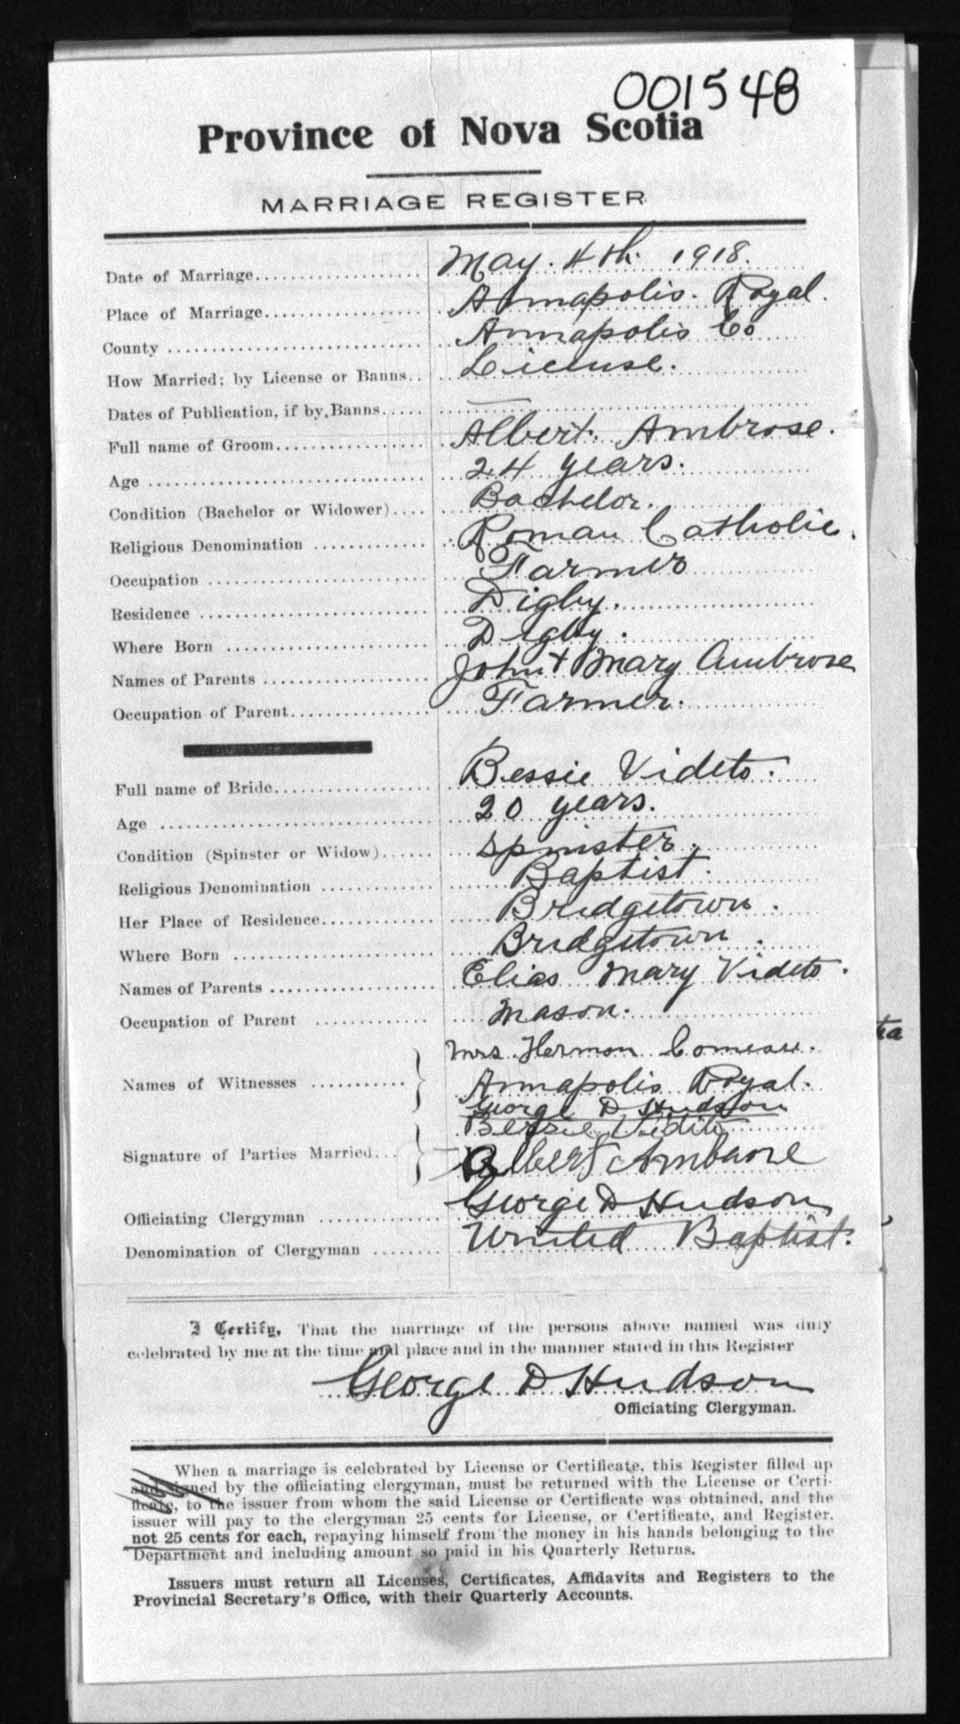 001548
Province of Nova Scotia
MARRIAGE REGISTER
Date of Marriage.................... May. 4th. 1918.
Place of Marriage................... Annapolis. Royal.
County ............................ Annapolis Co
How Married; by License or Banns.. License.
Dates of Publication, if by Banns.....
Full name of Groom................. Albert. Ambrose.
Age ............................... 24 years.
Condition (Bachelor or Widower).... Bachelor.
Religious Denomination ............ Roman Catholic.
Occupation ........................ Farmer
Residence ......................... Digby.
Where Born ........................ Digby.
Names of Parents .................. John + Mary Ambrose
Occupation of Parent............... Farmer.
Full name of Bride................. Bessie Videto.
Age ............................... 20 years.
Condition (Spinster or Widow)...... Spinster.
Religious Denomination ............ Baptist.
Her Place of Residence............. Bridgetown.
Where Born ........................ Bridgetown.
Names of Parents .................. Elias Mary Videto.
Occupation of Parent ............. Mason.
Mrs. Hermon Comeau.
Names of Witnesses ........... Annapolis Royal.
George D Hudson
Bessie Videto
Signature of Parties Married... Albert Ambrose
Officiating Clergyman ............. George D Hudson
Denomination of Clergyman ........ United Baptist.
I Certify, That the marriage of the persons above named was duly
celebrated by me at the time and place and in the manner stated in this Register
George D Hudson
Officiating Clergyman.
When a marriage is celebrated by License or Certificate, this Register filled up
and signed by the officiating clergyman, must be returned with the License or Certi-
ficate, to the issuer from whom the said License or Certificate was obtained, and the
issuer will pay to the clergyman 25 cents for License, or Certificate, and Register,
not 25 cents for each, repaying himself from the money in his hands belonging to the
Department and including amount so paid in his Quarterly Returns.
Issuers must return all Licenses, Certificates, Affidavits and Registers to the
Provincial Secretary's Office, with their Quarterly Accounts.